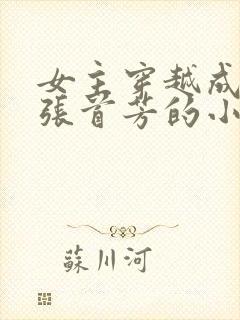 女主穿越成
張首芳的小
蘇川河